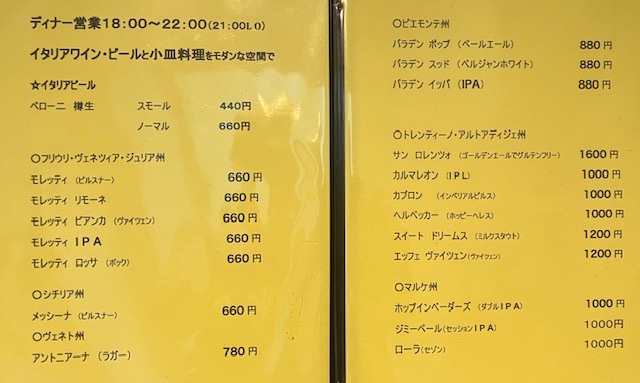 ディナー営業18:00～22:00(21:00LO)
イタリアワイン・ビールと小皿料理をモダンな空間で
☆イタリアビール
ペローニ 樽生 スモール 440円
ノーマル 660円
○フリウリ・ヴェネツィア・ジュリア州
モレッティ (ピルスナー) 660円
モレッティ リモーネ 660円
モレッティ ビアンカ (ヴァイツェン) 660円
モレッティ IPA 660円
モレッティ ロッサ (ボック) 660円
○シチリア州
メッシーナ (ピルスナー) 660円
○ヴェネト州
アントニアーナ (ラガー) 780円
○ピエモンテ州
バラデン ポップ (ペールエール) 880円
バラデン スッド (ベルジャンホワイト) 880円
バラデン イッパ (IPA) 880円
○トレンティーノ・アルトアディジェ州
サン ロレンツォ (ゴールデンエールでグルテンフリー) 1600円
カルマレオン (IPL) 1000円
カブロン (インペリアルピルス) 1000円
ヘルベッカー (ホッピーヘレス) 1000円
スイート ドリームス (ミルクスタウト) 1200円
エッフェ ヴァイツェン (ヴァイツェン) 1200円
○マルケ州
ホップインベーダーズ (ダブルIPA) 1000円
ジミーペール (セッションIPA) 1000円
ローラ (セゾン) 1000円